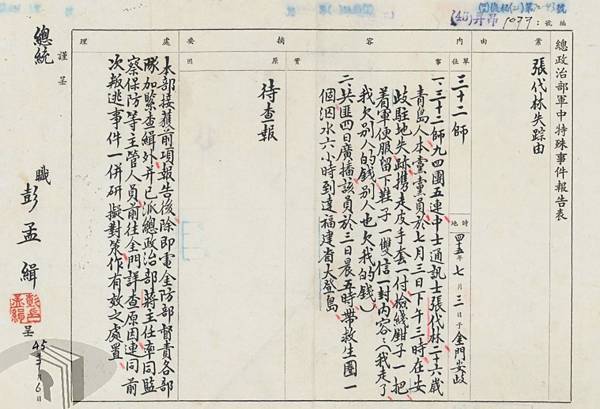 (45)丹昂 1077
編號:
總政治部軍中特殊事件報告表
案由
張代林失踪由
內容摘要
單位
三十二師
時地
四五年七月三日于金門安歧
事實
一、三十二師九四團五連中士通訊士張代林二十六歲
青島人本黨黨員於七月三日下午三時在安
歧駐地失跡携走皮手套一付檢綫鉗子一把
着軍便服留下鞋子一雙信一封內容：(我走了
我欠別人的錢別人也欠我的錢)
二、共匪四日廣播該員於三日晨五時帶救生圈一
個泅水六小時到達福建省大登島
原因
待查報
處理
本部接獲前項報告後除即電金防部督責各部
隊加緊查緝外并已派總政治部蔣主任率同監
察保防等主管人員前往金門詳查原因連同前
次叛逃事件一併研擬對策作有效之處置
謹呈
總統
職彭孟緝
呈
45年 月6日